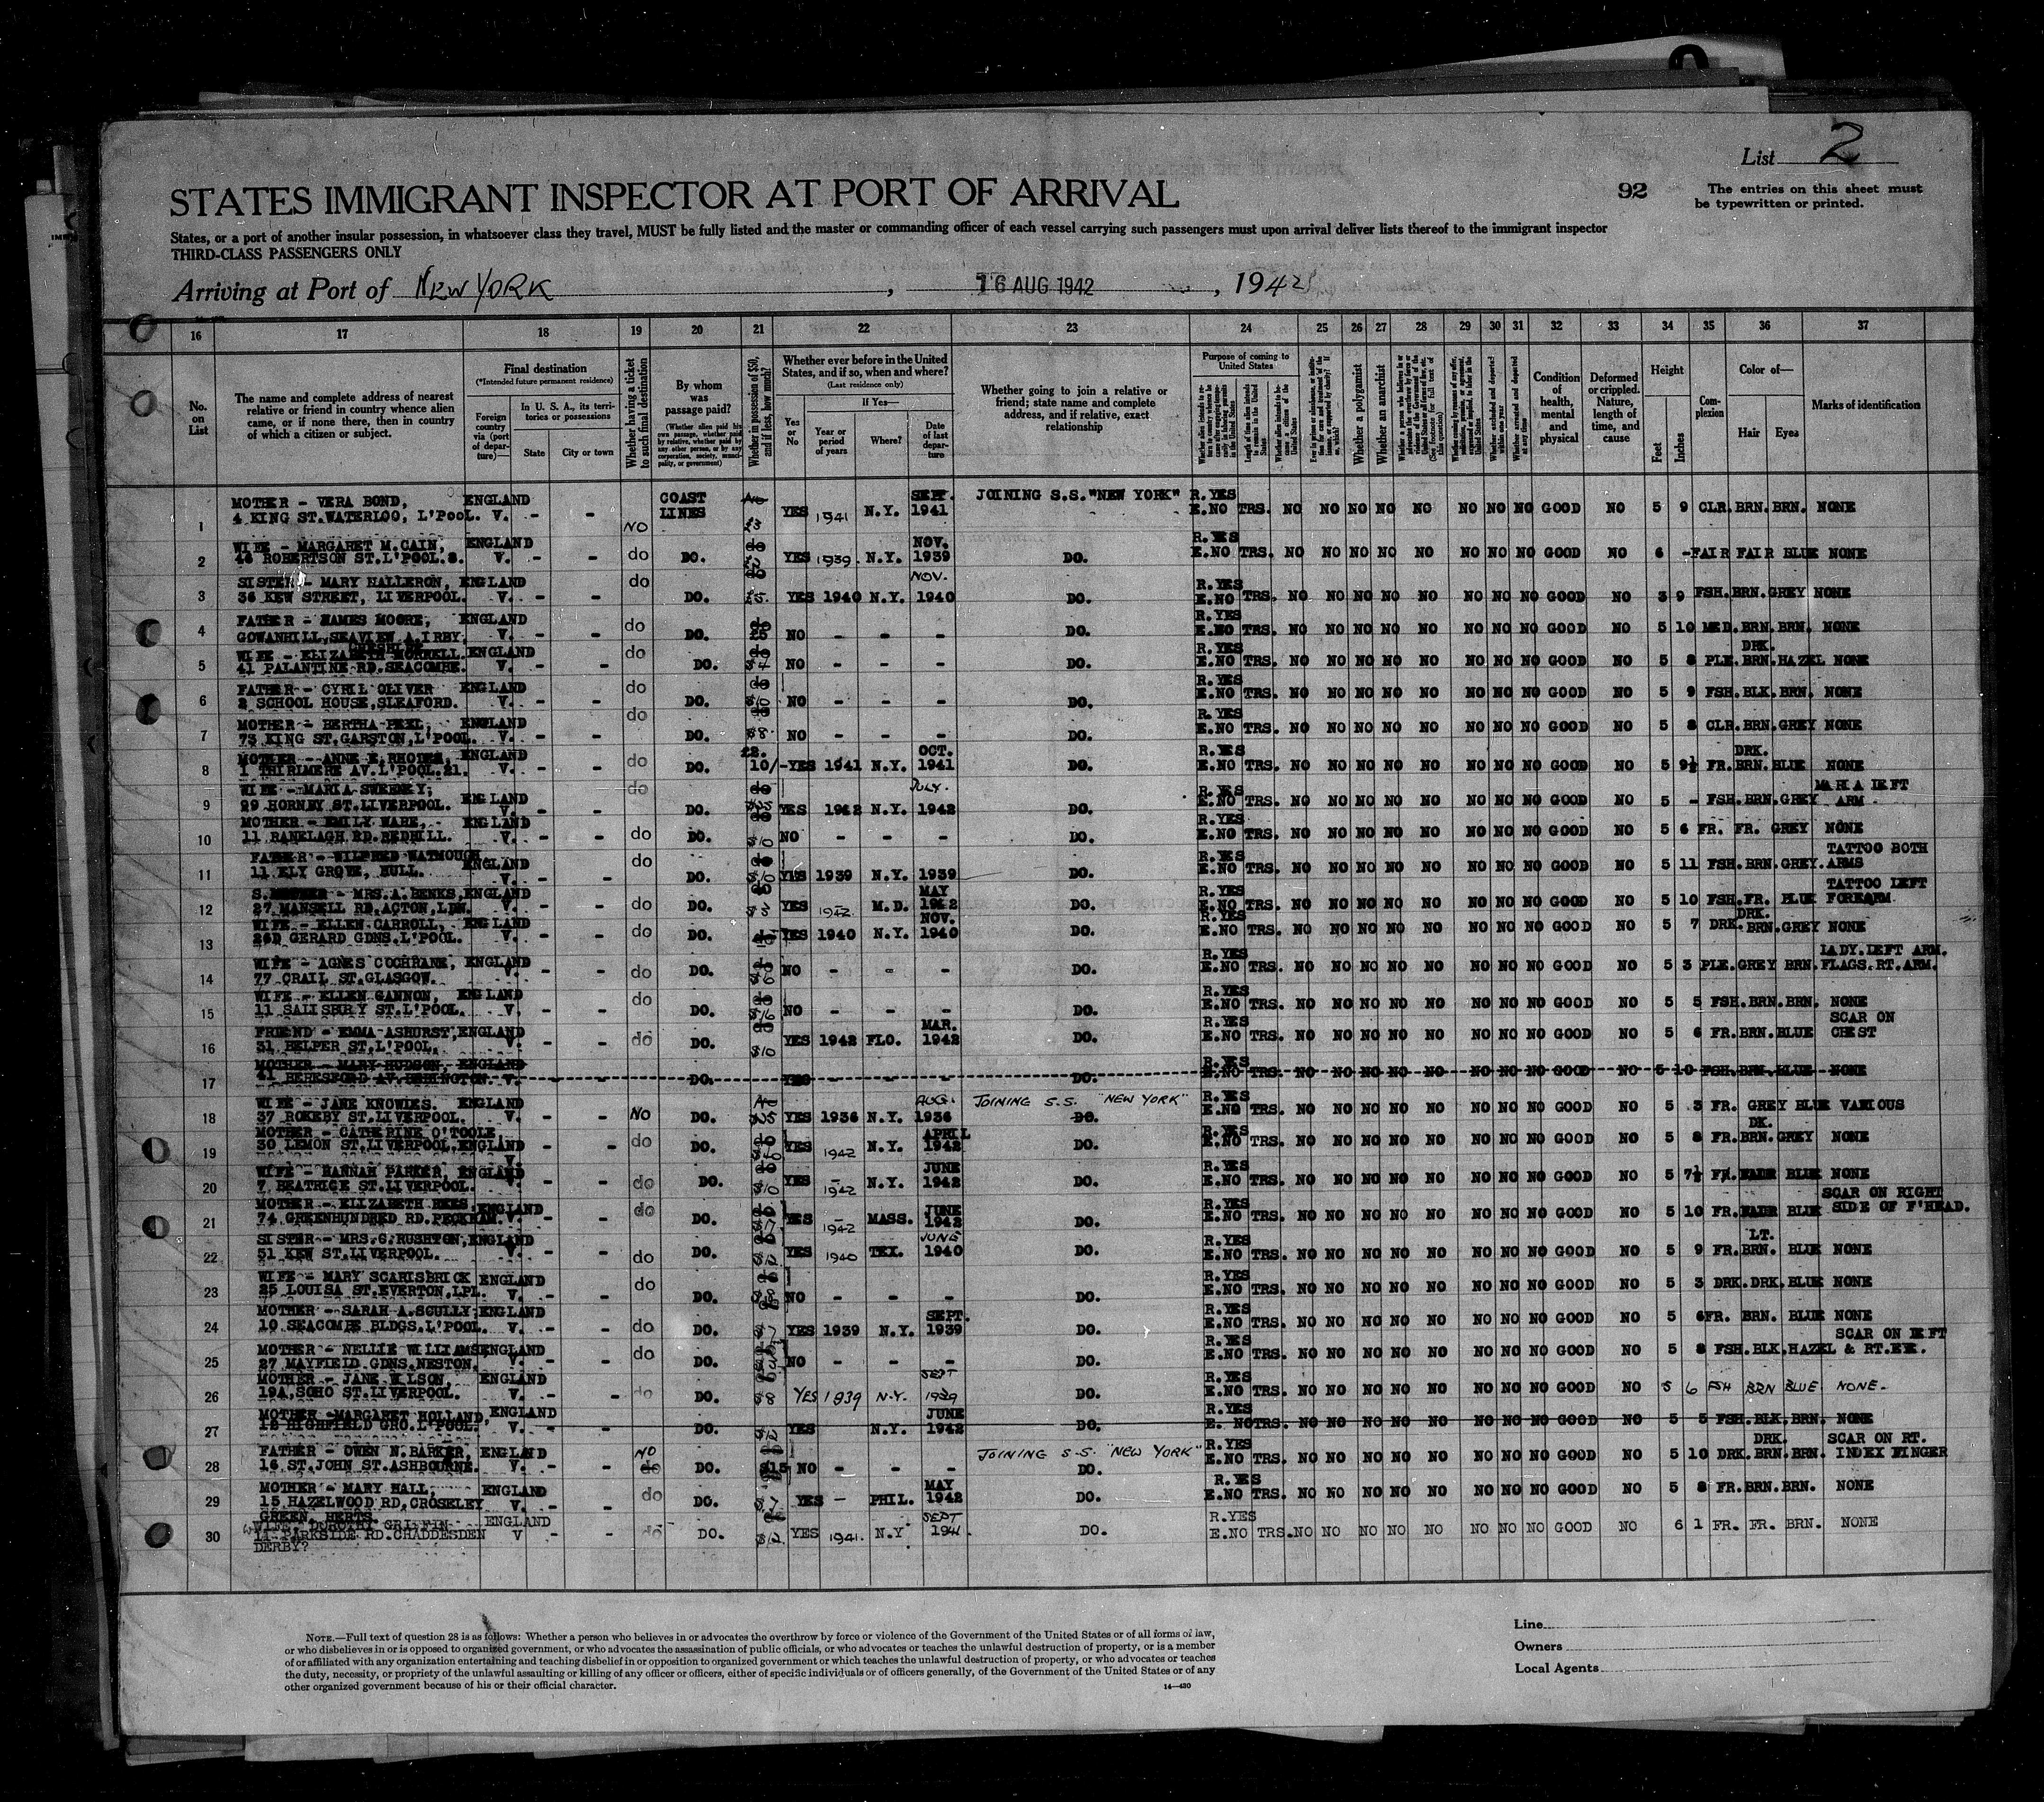 List 2
STATES IMMIGRANT INSPECTOR AT PORT OF ARRIVAL
92
The entries on this sheet must
be typewritten or printed.
States, or a port of another insular possession, in whatsoever class they travel, MUST be fully listed and the master or commanding officer of each vessel carrying such passengers must upon arrival deliver lists thereof to the immigrant inspector
THIRD-CLASS PASSENGERS ONLY
Arriving at Port of NEW YORK, 16 AUG 1942, 1942
16 17 18 19 20 21 22 23 24 25 26 27 28 29 30 31 32 33 34 35 36 37
No. on List
The name and complete address of nearest relative or friend in country whence alien came, or if none there, then in country of which a citizen or subject.
Final destination
(*Intended future permanent residence)
Foreign country via (port of departure)—
In U. S. A., its territories or possessions
State
City or town
Whether having a ticket to such final destination
By whom was passage paid?
(Whether alien paid his own passage, whether paid by relative, whether paid by any other person, or by any corporation, society, municipality, or government)
Whether in possession of $50, and if less, how much?
Whether ever before in the United States, and if so, when and where?
(Last residence only)
Yes or No
If Yes—
Year or period of years
Where?
Date of last departure
Whether going to join a relative or friend; state name and complete address, and if relative, exact relationship
Purpose of coming to United States
Whether a polygamist
Whether an anarchist
Condition of health, mental and physical
Deformed or crippled. Nature, length of time, and cause
Height
Feet
Inches
Complexion
Color of—
Hair
Eyes
Marks of identification
MOTHER - VERA BOND, ENGLAND COAST SEPT. JOINING S.S. "NEW YORK" R.YES
1 4 KING ST.WATERLOO, L'POOL. V. - - NO LINES £3 YES 1941 N.Y. 1941 E.NO TRS. NO NO NO NO NO NO NO NO GOOD NO 5 9 CLR. BRN. BRN. NONE
WIFE - MARGARET M.CAIN, ENGLAND NOV. R.YES
2 48 ROBERTSON ST.L'POOL.8. V. - - do DO. YES 1939. N.Y. 1939 DO. E.NO TRS. NO NO NO NO NO NO NO NO GOOD NO 6 - FAIR FAIR BLUE NONE
SISTER - MARY HALLERON, ENGLAND NOV. R.YES
3 36 KEW STREET, LIVERPOOL. V. - - do DO. £5. YES 1940 N.Y. 1940 DO. E.NO TRS. NO NO NO NO NO NO NO NO GOOD NO 5 9 FSH. BRN. GREY NONE
FATHER - HAMES MOORE, ENGLAND R.YES
4 GOWANHILL,SEAVIEW A.IRBY, V. - - do DO. £5 NO - - - DO. E.NO TRS. NO NO NO NO NO NO NO NO GOOD NO 5 10 MED. BRN. BRN. NONE
CHESHIRE
WIFE - ELIZABETH MORNELL ENGLAND R.YES DRK.
5 41 PALANTINE RD.SEACOMBE. V. - - do DO. $4 NO - - - DO. E.NO TRS. NO NO NO NO NO NO NO NO GOOD NO 5 8 PLE. BRN. HAZEL NONE
FATHER - CYRIL OLIVER ENGLAND R.YES
6 2 SCHOOL HOUSE,SLEAFORD. V. - - do DO. $10 NO - - - DO. E.NO TRS. NO NO NO NO NO NO NO NO GOOD NO 5 9 FSH. BLK. BRN. NONE
MOTHER - BERTHA PEXL, ENGLAND R.YES
7 73 KING ST.GARSTON,L'POOL. V. - - do DO. $8. NO - - - DO. E.NO TRS. NO NO NO NO NO NO NO NO GOOD NO 5 8 CLR. BRN. GREY NONE
MOTHER - ANNE E.RHODES, ENGLAND £2. OCT. R.YES DRK.
8 1 THIRLMERE AV.L'POOL.21. V. - - do DO. 10/- YES 1941 N.Y. 1941 DO. E.NO TRS. NO NO NO NO NO NO NO NO GOOD NO 5 9½ FR. BRN. BLUE NONE
WIFE - MARIA SWEENEY, ENGLAND JULY. R.YES MARIA LEFT
9 29 HORNBY ST.LIVERPOOL. V. - - do DO. YES 1942 N.Y. 1942 DO. E.NO TRS. NO NO NO NO NO NO NO NO GOOD NO 5 - FSH. BRN. GREY ARM
MOTHER - EMILY WARE, ENGLAND R.YES
10 11 RANELAGH RD.REDHILL. V. - - do DO. $10 NO - - - DO. E.NO TRS. NO NO NO NO NO NO NO NO GOOD NO 5 6 FR. FR. GREY NONE
FATHER - WILFRED WATMOUGH ENGLAND R.YES TATTOO BOTH
11 11 ELY GROVE, HULL. V. - - do DO. $10 YES 1939 N.Y. 1939 DO. E.NO TRS. NO NO NO NO NO NO NO NO GOOD NO 5 11 FSH. BRN. GREY. ARMS
S. MOTHER - MRS.A.BENKS, ENGLAND MAY R.YES TATTOO LEFT
12 27 MANSELL RD.ACTON,LDN. V. - - do DO. $3 YES 1942. M.D. 1942 DO. E.NO TRS. NO NO NO NO NO NO NO NO GOOD NO 5 10 FSH. FR. BLUE FOREARM.
WIFE - ELLEN CARROLL, ENGLAND NOV. R.YES DRK.
13 26D GERARD GDNS.L'POOL. V. - - do DO. YES 1940 N.Y. 1940 DO. E.NO TRS. NO NO NO NO NO NO NO NO GOOD NO 5 7 DRK. BRN. GREY NONE
WIFE - AGNES COCHRANE, ENGLAND R.YES LADY.LEFT ARM.
14 77 CRAIL ST.GLASGOW. V. - - do DO. NO - - - DO. E.NO TRS. NO NO NO NO NO NO NO NO GOOD NO 5 3 PLE. GREY BRN. FLAGS.RT.ARM.
WIFE - ELLEN GANNON, ENGLAND R.YES
15 11 SALISBURY ST.L'POOL. V. - - do DO. $16 NO - - - DO. E.NO TRS. NO NO NO NO NO NO NO NO GOOD NO 5 5 FSH. BRN. BRN. NONE
FRIEND - EMMA ASHURST, ENGLAND MAR. R.YES SCAR ON
16 31 BELPER ST.L'POOL. V. - - do DO. $10 YES 1942 FLO. 1942 DO. E.NO TRS. NO NO NO NO NO NO NO NO GOOD NO 5 6 FR. BRN. BLUE CHEST
MOTHER - MARY HUDSON, ENGLAND R.YES
17 41 BERESFORD AV.BEBINGTON. V. - - DO. YES - - - DO. E.NO TRS. NO NO NO NO NO NO NO NO GOOD NO 5 10 FSH. BRN. BLUE NONE
WIFE - JANE KNOWLES. ENGLAND AUG. JOINING S.S. "NEW YORK" R.YES
18 37 ROKEBY ST.LIVERPOOL. V. - - NO DO. $25 YES 1936 N.Y. 1936 DO. E.NO TRS. NO NO NO NO NO NO NO NO GOOD NO 5 3 FR. GREY BLUE VARIOUS
MOTHER - CATHERINE O'TOOLE APRIL R.YES DK.
19 30 LEMON ST.LIVERPOOL. ENGLAND V. - - do DO. YES 1942 N.Y. 1942 DO. E.NO TRS. NO NO NO NO NO NO NO NO GOOD NO 5 8 FR. BRN. GREY NONE
WIFE - HANNAH PARKER, ENGLAND JUNE R.YES
20 7 BEATRICE ST.LIVERPOOL. V. - - do DO. $10 YES 1942 N.Y. 1942 DO. E.NO TRS. NO NO NO NO NO NO NO NO GOOD NO 5 7½ FR. FAIR BLUE NONE
MOTHER - ELIZABETH REES, ENGLAND JUNE R.YES SCAR ON RIGHT
21 74 GREENHUNDRED RD.PECKHAM. V. - - do DO. $17 YES 1942 MASS. 1942 DO. E.NO TRS. NO NO NO NO NO NO NO NO GOOD NO 5 10 FR. FAIR BLUE SIDE OF F'HEAD.
SISTER - MRS.G.RUSHTON, ENGLAND JUNE R.YES LT.
22 51 KEW ST.LIVERPOOL. V. - - do DO. $12. YES 1940 TEX. 1940 DO. E.NO TRS. NO NO NO NO NO NO NO NO GOOD NO 5 9 FR. BRN. BLUE NONE
WIFE - MARY SCARISBRICK ENGLAND R.YES
23 25 LOUISA ST.EVERTON,LPL. V. - - do DO. NO - - - DO. E.NO TRS. NO NO NO NO NO NO NO NO GOOD NO 5 3 DRK. DRK. BLUE NONE
MOTHER - SARAH A.SCULLY ENGLAND SEPT. R.YES
24 10 SEACOMBE BLDGS.L'POOL. V. - - do DO. $7 YES 1939 N.Y. 1939 DO. E.NO TRS. NO NO NO NO NO NO NO NO GOOD NO 5 6 FR. BRN. BLUE NONE
MOTHER - NELLIE WILLIAMS ENGLAND R.YES SCAR ON LEFT
25 27 MAYFIELD GDNS.NESTON. V. - - do DO. NO - - - DO. E.NO TRS. NO NO NO NO NO NO NO NO GOOD NO 5 8 FSH. BLK. HAZEL & RT.EYE.
MOTHER - JANE WILSON, ENGLAND SEPT R.YES
26 19A,SOHO ST.LIVERPOOL. V. - - do DO. $8 YES 1939 N.Y. 1939 DO. E.NO TRS. NO NO NO NO NO NO NO NO GOOD NO 5 6 FSH BRN BLUE NONE.
MOTHER -MARGARET HOLLAND, ENGLAND JUNE R.YES
27 12 HIGHFIELD GRO.L'POOL. V. - - DO. $12 YES N.Y. 1942 DO. E. NO TRS. NO NO NO NO NO NO NO NO GOOD NO 5 5 FSH. BLK. BRN. NONE
FATHER - OWEN N.BARKER, ENGLAND NO JOINING S.S. "NEW YORK" R.YES DRK. SCAR ON RT.
28 16 ST.JOHN ST.ASHBOURNE. V. - - do DO. $15 NO - - - DO. E.NO TRS. NO NO NO NO NO NO NO NO GOOD NO 5 10 DRK. BRN. BRN. INDEX FINGER
MOTHER - MARY HALL, ENGLAND MAY R.YES
29 15 HAZELWOOD RD,CROSELEY V. - - do DO. $7 YES - PHIL. 1942 DO. E.NO TRS. NO NO NO NO NO NO NO NO GOOD NO 5 8 FR. BRN. BRN. NONE
GREEN, HERTS.
WIFE DOROTHY GRIFFIN ENGLAND SEPT R.YES
30 11 PARKSIDE RD.CHADDESDEN V - - do DO. $12 YES 1941. N.Y 1941 DO. E.NO TRS. NO NO NO NO NO NO NO NO GOOD NO 6 1 FR. FR. BRN. NONE
DERBY?
NOTE.—Full text of question 28 is as follows: Whether a person who believes in or advocates the overthrow by force or violence of the Government of the United States or of all forms of law,
or who disbelieves in or is opposed to organized government, or who advocates the assassination of public officials, or who advocates or teaches the unlawful destruction of property, or is a member
of or affiliated with any organization entertaining and teaching disbelief in or opposition to organized government or which teaches the unlawful destruction of property, or who advocates or teaches
the duty, necessity, or propriety of the unlawful assaulting or killing of any officer or officers, either of specific individuals or of officers generally, of the Government of the United States or of any
other organized government because of his or their official character.
14—430
Line
Owners
Local Agents